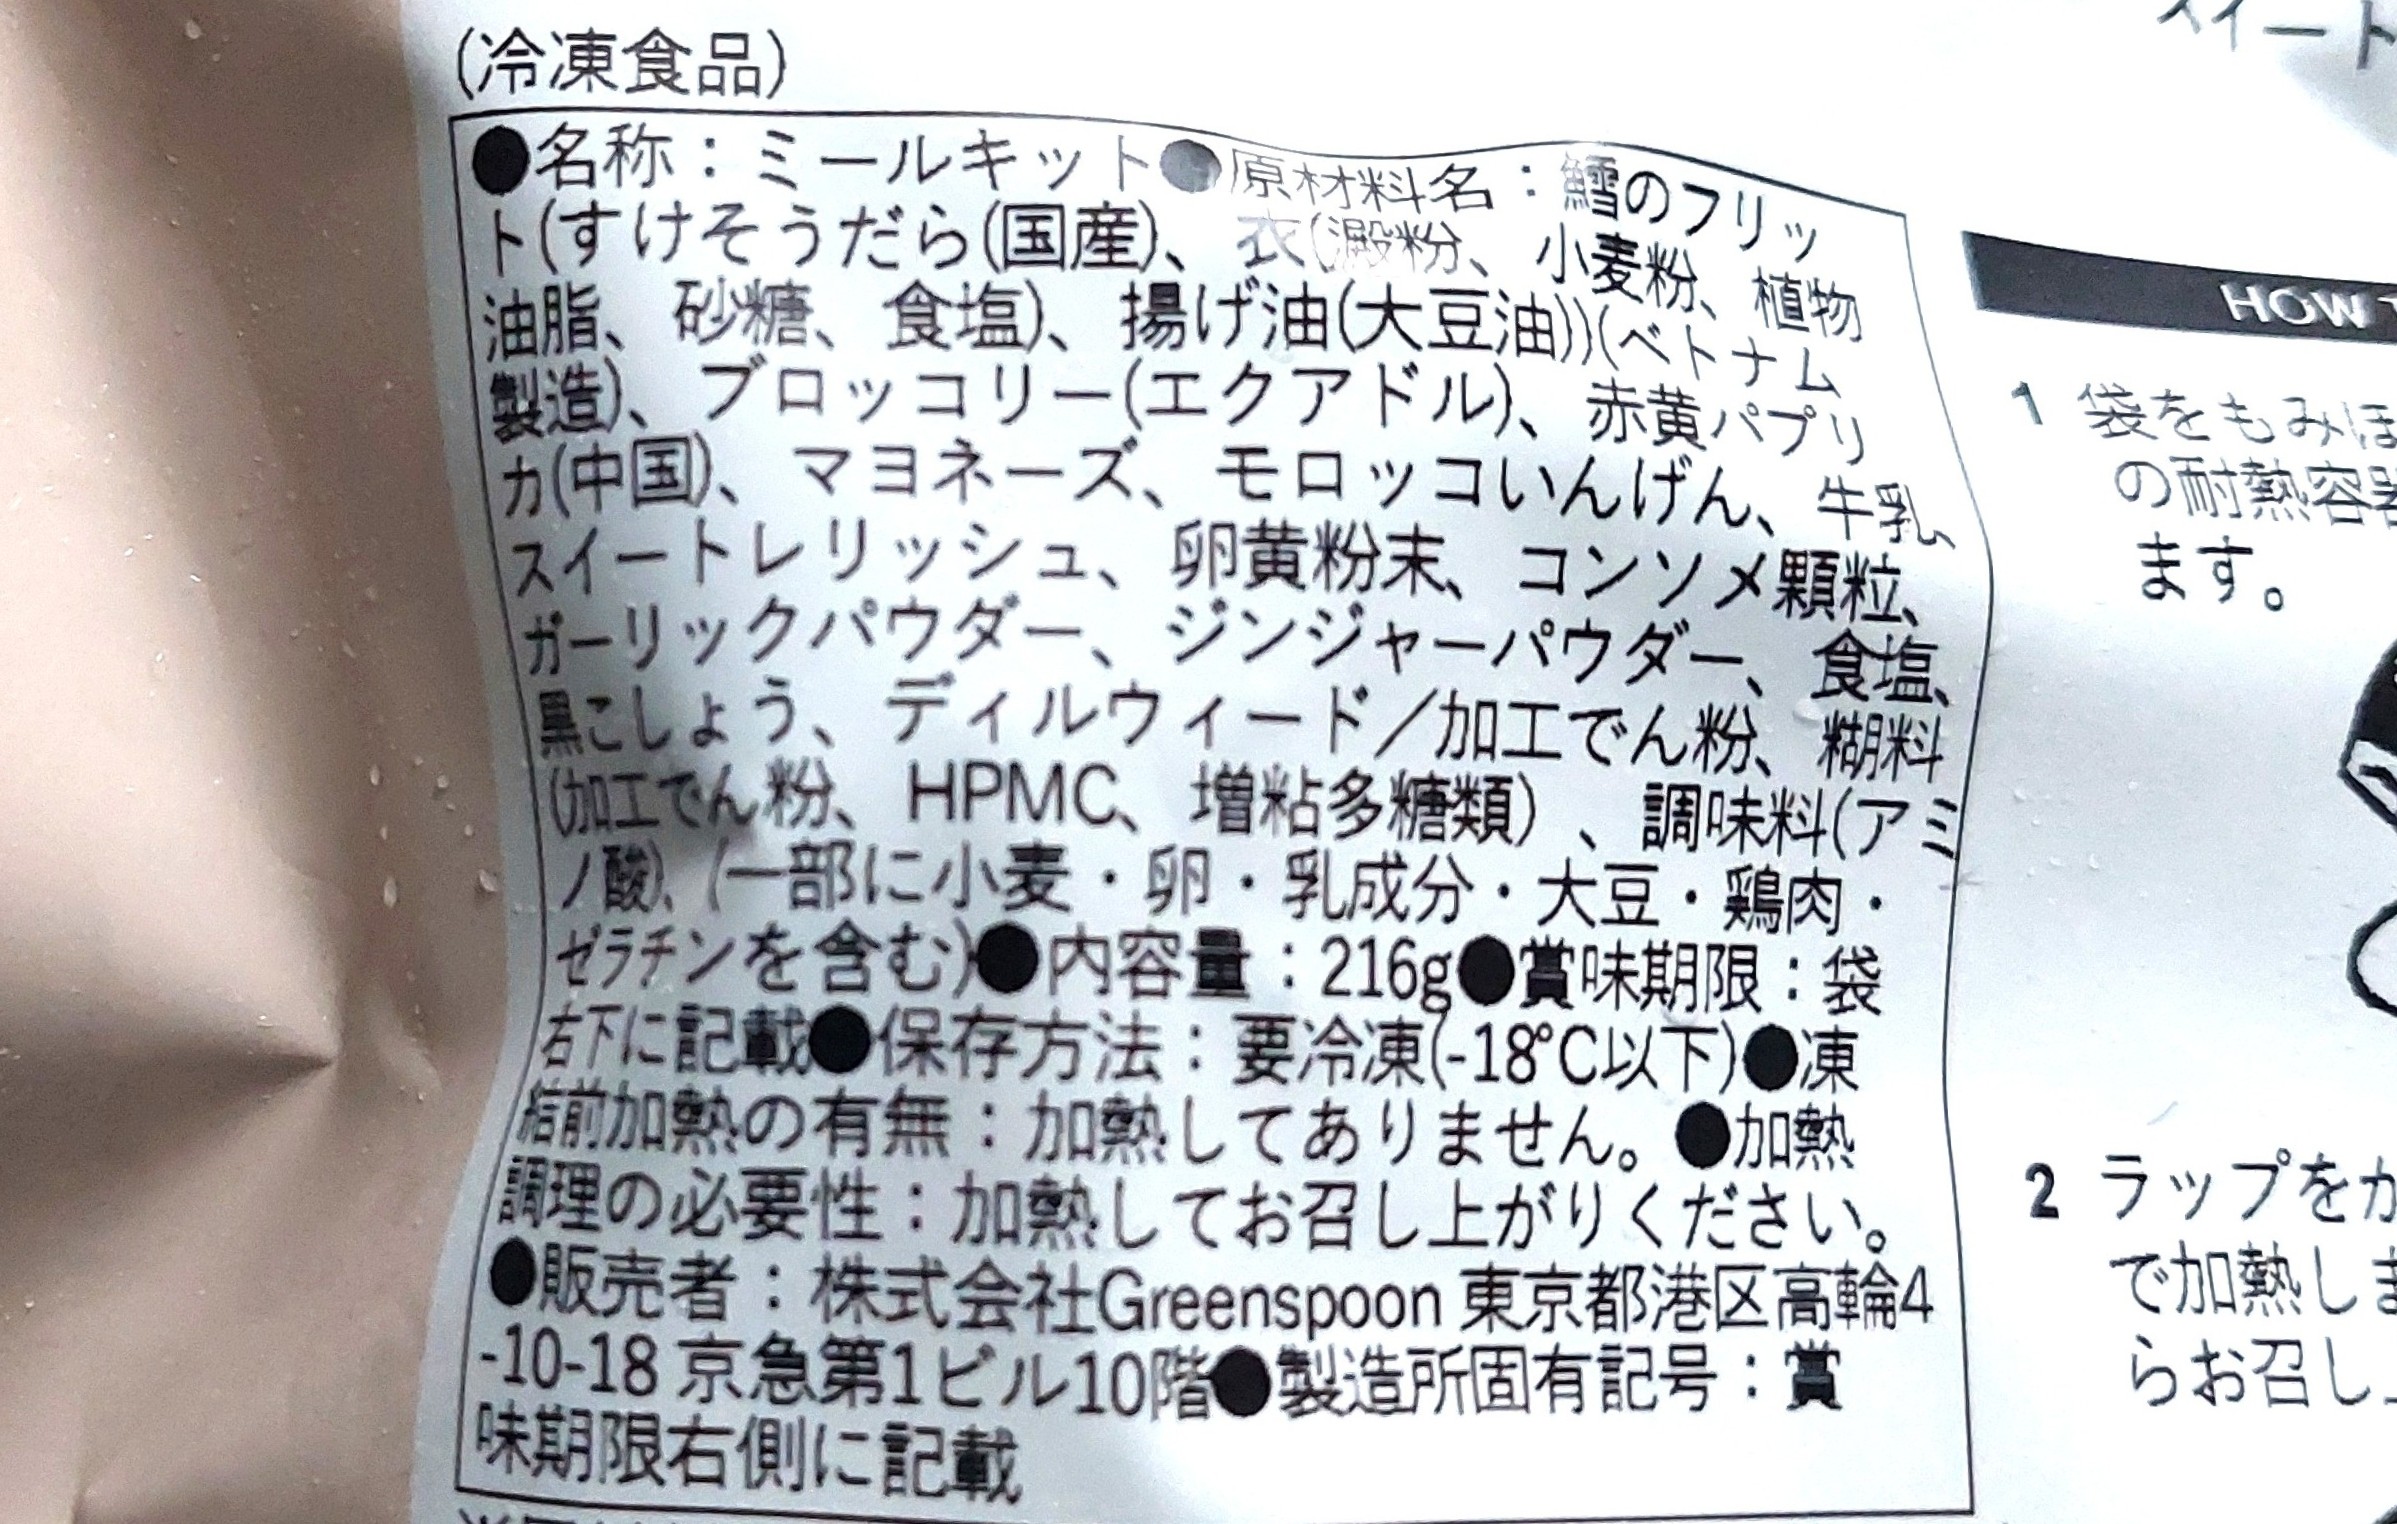 (冷凍食品)
●名称：ミールキット●原材料名：鱈のフリッ
ト(すけそうだら(国産)、衣(澱粉、小麦粉、植物
油脂、砂糖、食塩)、揚げ油(大豆油))(ベトナム
製造)、ブロッコリー(エクアドル)、赤黄パプリ
カ(中国)、マヨネーズ、モロッコいんげん、牛乳、
スイートレリッシュ、卵黄粉末、コンソメ顆粒、
ガーリックパウダー、ジンジャーパウダー、食塩、
黒こしょう、ディルウィード／加工でん粉、糊料
(加工でん粉、HPMC、増粘多糖類）、調味料(アミ
ノ酸)、(一部に小麦・卵・乳成分・大豆・鶏肉・
ゼラチンを含む)●内容量：216g●賞味期限：袋
右下に記載●保存方法：要冷凍(-18℃以下)●凍
結前加熱の有無：加熱してありません。●加熱
調理の必要性：加熱してお召し上がりください。
●販売者：株式会社Greenspoon 東京都港区高輪4
-10-18 京急第1ビル10階●製造所固有記号：賞
味期限右側に記載
スイート
HOW
1 袋をもみほ
の耐熱容器
ます。
2 ラップをか
で加熱しま
らお召し